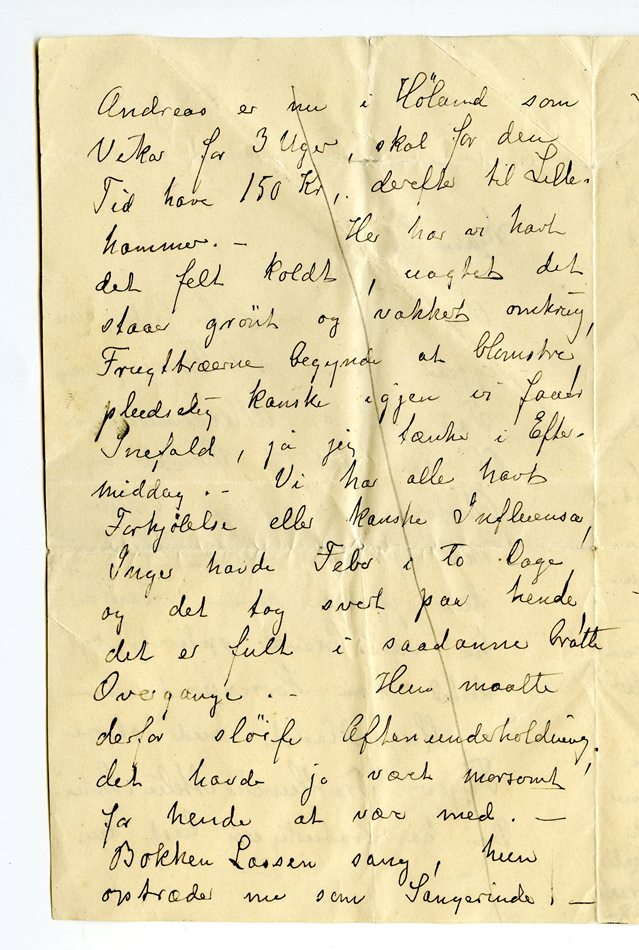 Andreas er nu i Höland som
Vikar for 3 Uger, skal for den
Tid have 150 Kr, derefter til Lille-
hammer. – Her har vi havt
det felt koldt, uagtet det
staar grönt og vakkert omkring,
Frugttræerne begynde at blomstre,
pludselig kanske igjen vi faaer
Snefald, ja jeg tænke i Efter-
middag. – Vi har alle havt
Forkjölelse eller kanske Influensa,
Inger havde Feber i to Dage,
og det tog svert paa hende,
det er fult i saadanne bratte
Overgange. – Hun maatte
derfor slöife Aftenunderholdning,
det havde jo vært morsomt
for hende at vær med. –
Bokken Lassen sang, hun
optræder nu som Sangerinde. –